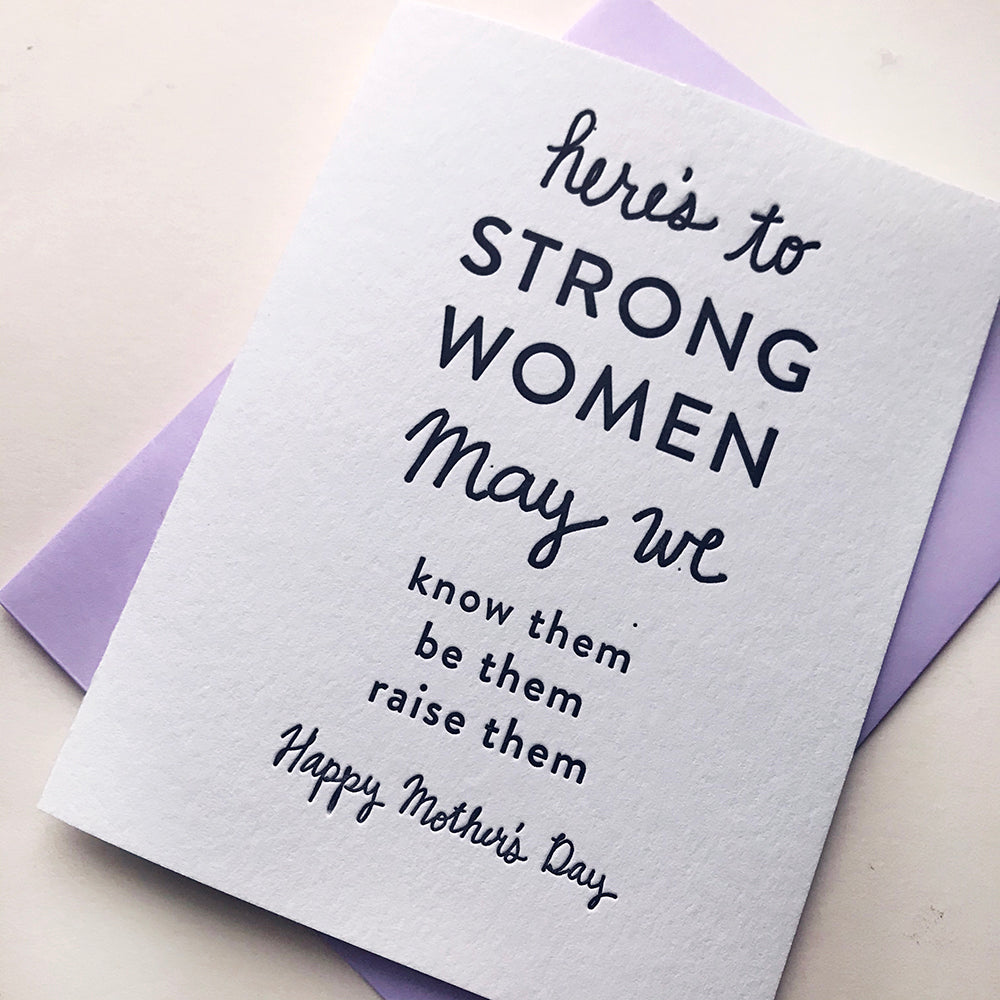 here's to
STRONG
WOMEN
May we
know them
be them
raise them
Happy Mother's Day